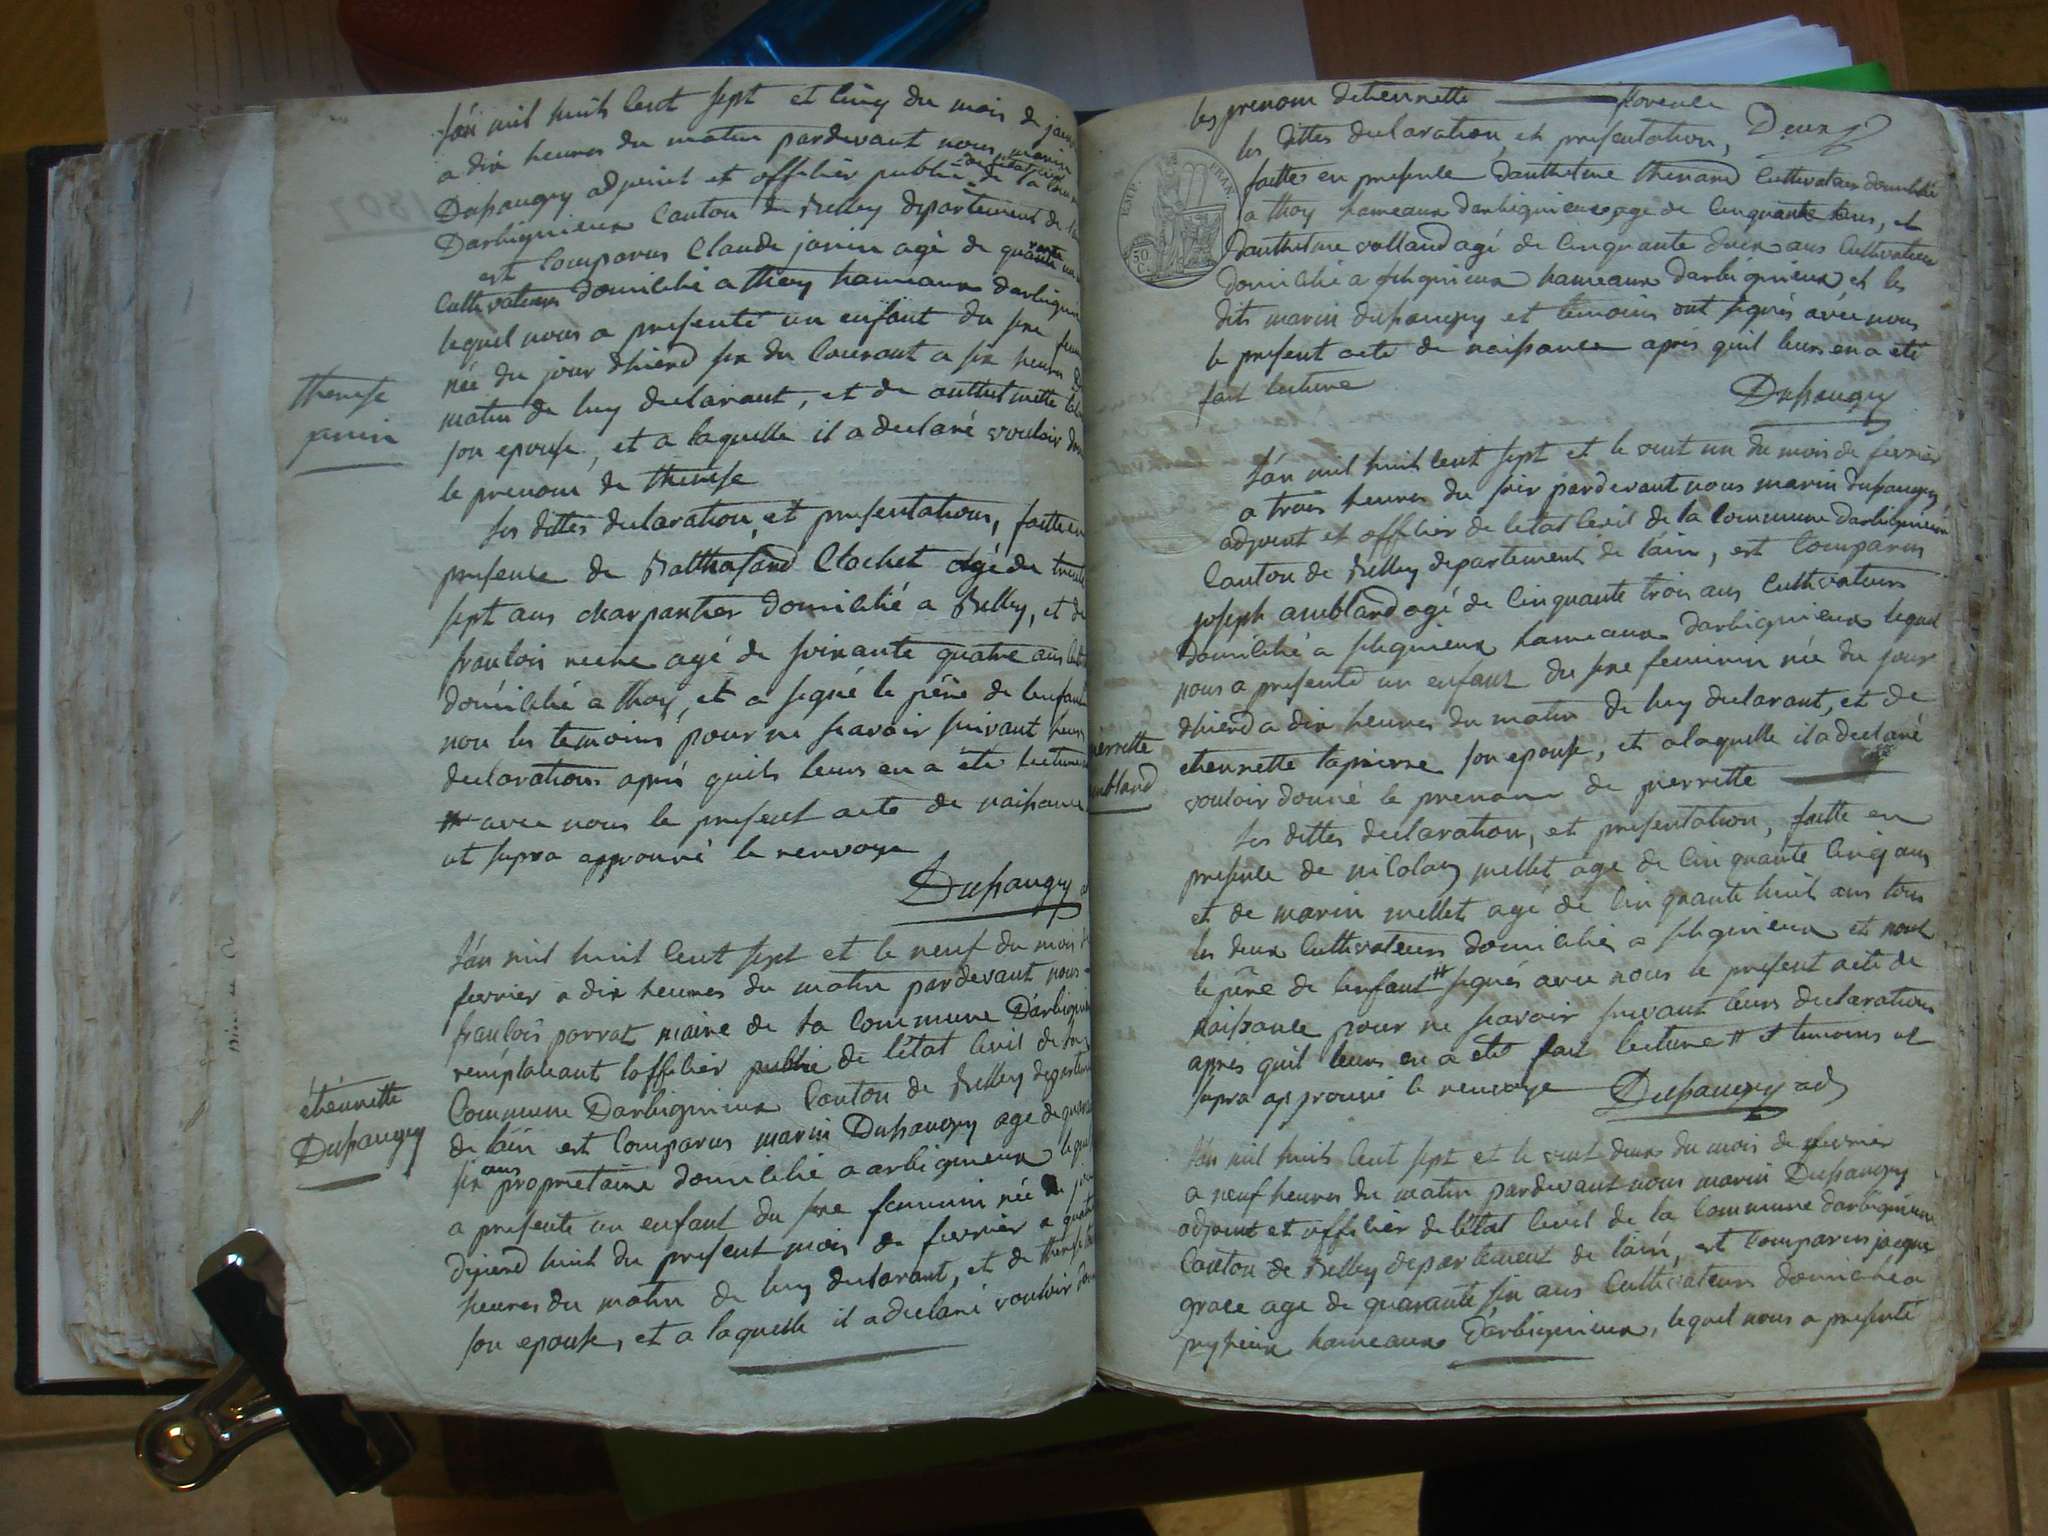 therese
janin
étiennette
Dupaugey
l'an mil huit cent sept et cinq du mois de janv
a dix heures du matin pardevant nous marin
Dupaugey adjoint et officier public de l'etat civil de la com
Darbignieux canton de Belley département de l'a
est comparus Claude janin agé de quarante
cultivateur domicilié a thoy hameaux darbigni
lequel nous a presenté un enfant du sexe femi
née du jour dhierd six du courant a six heures d
matin de luy declarant, et de anthelmette
son epouse, et a laquelle il a declaré vouloir don
le prenom de therese
les dittes declaration et presentations, faitte en
presence de Balthasard Clochet agé de trente
sept ans charpantier domicilié a Belley, et de
francois reche agé de soixante quatre ans cult
domicilié a thoy, et a signé le père de lenfant
non les temoins pour ne scavoir suivant leurs
declarations après quils leurs en a été lecture
# avec nous le present acte de naissance
ut supra approuvé le renvoye
Dupaugey a
l'an mil huit cent sept et le neuf du mois de
fevrier a dix heures du matin pardevant nous
francois porrat maire de la commune Darbigni
remplaceant lofficier public de l'état civil de la
commune Darbignieux canton de Belley departem
de lain est comparus marin Dupaugey age de quara
six ans propriétaire domicilié a arbignieux lequel
a presenté un enfant du sexe feminin née du jour
dhierd huit du present mois de fevrier a quatre
heures du matin de luy declarant, et de therese
son epouse, et a laquelle il a declaré vouloir don
les prenom detiennette florence
les dittes declaration, et presentation, Deux
EMP. FRAN.
50 C.
faittes en presence danthelme thenard cultivateur domicilié
a thoy hameaux darbignieux age de cinquante trois, et
danthelme volland agé de cinquante deux ans cultivateur
domicilié a slignieux hameaux darbignieux et les
dits marin dupaugey et temoins ont signés avec nous
le present acte de naissance après quil leurs en a eté
fait lecture
Dupaugey
l'an mil huit cent sept et le vint un du mois de fevrier
a trois heures du soir pardevant nous marin dupaugey
adjoint et officier de letat civil de la commune darbignieux
canton de Belley departement de l'ain, est comparus
joseph ambland agé de cinquante trois ans cultivateur
domicilié a slignieux hameaux darbignieux lequel
nous a presenté un enfant du sexe feminin née du jour
dhierd a dix heures du matin de luy declarant, et de
etiennette lapierre son epouse, et a laquelle il a declaré
vouloir donné le prenom de pierrette
ierrette
mbland
les dittes declaration, et presentation, faitte en
presence de nicolas mellet age de cinquante cinq ans
et de marin mellet agé de cinquante huit ans tous
les deux cultivateurs domicilié a slignieux et nont
le père de lenfant # signés avec nous le present acte de
naissance pour ne scavoir suivant leurs declarations
après quil leurs en a eté fait lecture # et temoins ut
supra approuvé le renvoye Dupaugey adj
l'an mil huit cent sept et le vint deux du mois de fevrier
a neuf heures du matin pardevant nous marin Dupaugey
adjoint et officier de létat civil de la commune darbignieux
canton de Belley departement de lain, est comparus jacque
grace age de quarante six ans cultivateur domicilié a
peyzieux hameaux Darbignieux, lequel nous a presenté